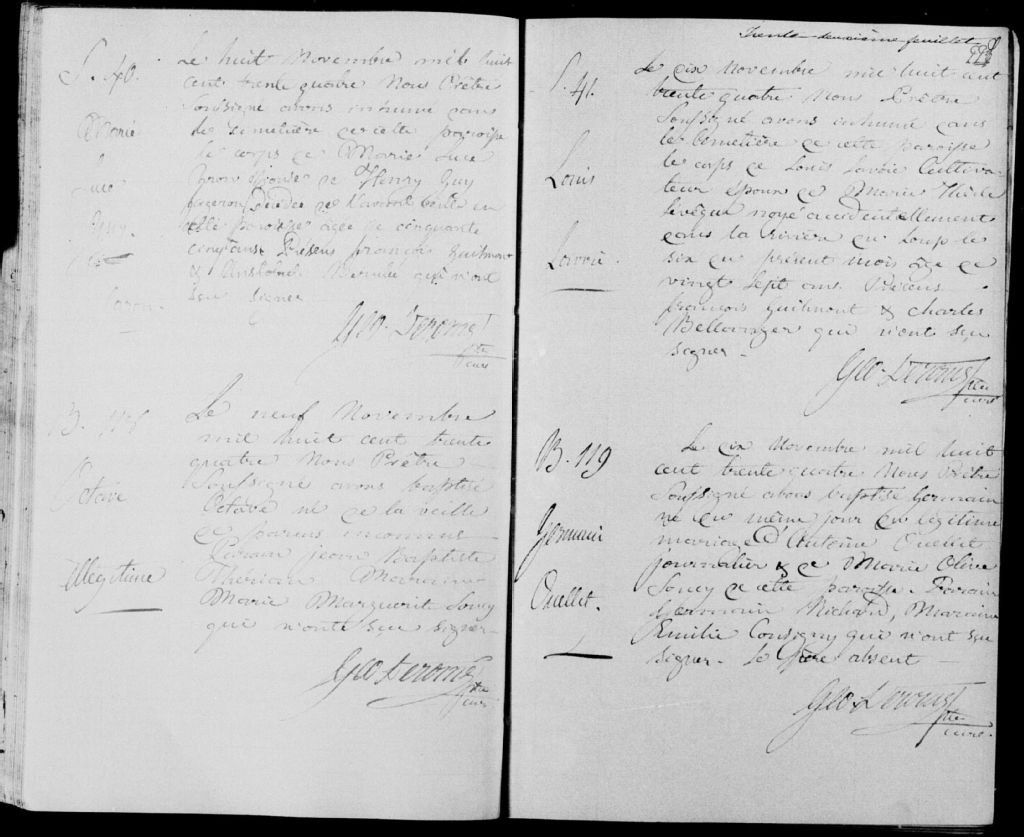 S. 40.
Marie
Luce
Le huit Novembre mil huit
cent trente quatre Nous Prêtre
Soussigné avons inhumé dans
le cimetière de cette paroisse
le corps de Marie Luce
épouse de Henry Guy
décédée
cette paroisse âgée de cinquante
cinq ans. Présens françois Guilmont
& Bernier qui n'ont
sçu signer
Geo. Derome Ptre
curé
B. 118
Octave
illégitime
Le neuf Novembre
mil huit cent trente
quatre Nous Prêtre
Soussigné avons baptisé
Octave né de la veille
de parens inconnus
Parain jean Baptiste
Thériau Maraine
Marie Marguerit Soucy
qui n'ont sçu signer
Geo Derome Ptre
curé
Trente-deuxième feuillet
S. 41.
Louis
Lavoie.
Le dix Novembre mil huit cent
trente quatre Nous Prêtre
Soussigné avons inhumé dans
le cemetière de cette paroisse
le corps de Louis Lavoie Cultiva-
teur époux de Marie
Levêque noyé accidentellement
dans la rivière du Loup le
six du présent mois âgé de
vingt sept ans. Présens
françois Guilmont & charles
Bellavanger qui n'ont sçu
signer -
Geo. Derome Ptre
curé
B. 119
Germain
Ouellet.
Le dix Novembre mil huit
cent trente quatre Nous Prêtre
Soussigné avons baptisé Germain
né du même jour du légitime
mariage d'Antoine Ouellet
journalier & de Marie Olive
Soucy de cette paroisse. Parrain
Germain Michaud, Maraine
Emilie Consigny qui n'ont sçu
signer. Le père absent
Geo Derome Ptre
curé.